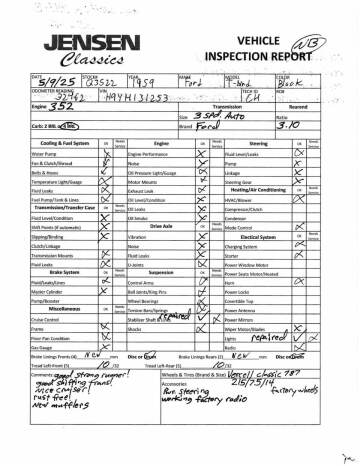 JENSEN
Classics
VEHICLE
INSPECTION REPORT
DATE 5/9/25 STOCK# YEAR 1959 MAKE Ford MODEL T-Bird COLOR Black
ODOMETER READING VIN H9YH131253 TECH ID CH RO#
Engine 352 Transmission Rearend
Size 3 Spd. Auto Ratio
Carb: 2 BBL or 4 BBL Brand Ford 3.10
Cooling & Fuel System OK Needs Service Engine OK Needs Service Steering OK Needs Service
Water Pump X Engine Performance X Fluid Level/Leaks X
Fan & Clutch/Shroud X Noise X Pump X
Belts & Hoses X Oil Pressure Light/Gauge X Linkage X
Temperature Light/Gauge X Motor Mounts X Steering Gear X
Fluid Leaks X Exhaust Leak X Heating/Air Conditioning OK Needs Service
Fuel Pump/Tank & Lines X Oil Level/Condition X HVAC/Blower X
Transmission/Transfer Case OK Needs Service Oil Leaks X Compressor/Clutch
Fluid Level/Condition X Oil Smoke X Condenser
Shift Points (if automatic) X Drive Axle OK Needs Service Mode Control X
Slipping/Binding X Vibration X Electrical System OK Needs Service
Clutch/Linkage Noise X Charging System X
Transmission Mounts X Fluid Leaks X Starter X
Fluid Leaks X U-Joints X Power Window Motor
Brake System OK Needs Service Suspension OK Needs Service Power Seats Motor/Heated
Fluid/Leaks/Lines X Control Arms X Horn X
Master Cylinder X Ball Joints/King Pins X Power Locks
Pump/Booster Wheel Bearings X Covertible Top
Miscellaneous OK Needs Service Torsion Bars/Springs X Power Antenna
Cruise Control Stabilizer Shaft & Links repaired Power Mirrors
Frame X Shocks X Wiper Motor/Blades X
Floor Pan Condition X Lights repaired
Gas Gauge X Radio X
Brake Linings Fronts (4) New mm Disc or Drum Brake Linings Rears (2) New mm Disc or Drum
Tread Left-Front (S) 10 /32 Tread Left-Rear (S) 10 /32
Comments: good strong runner! Wheels & Tires (Brand & Size) classic 787
good shifting trans! 215/75/14
nice cruiser! Accessories factory wheels
rust free! Pwr steering
New mufflers working factory radio